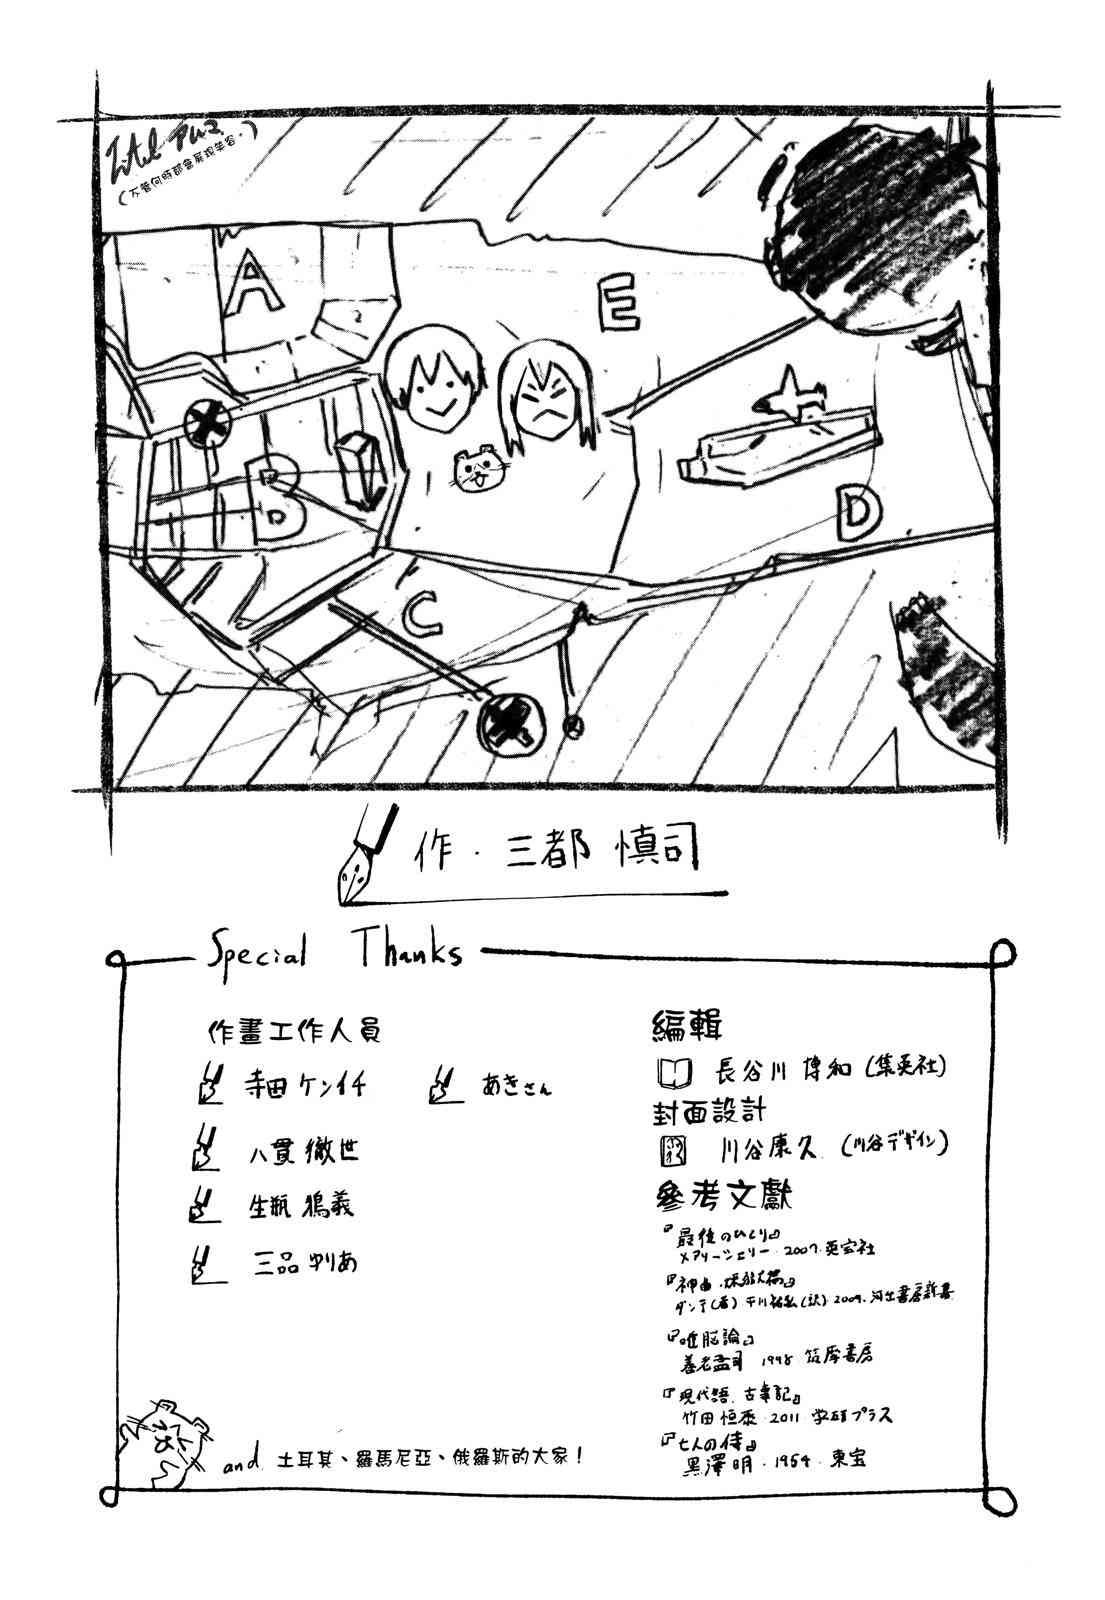 (不管何時都會展現笑容。)
A
E
B
D
C
作・三都 慎司
Special Thanks
作畫工作人員
寺田 ケンイチ
あきさん
八貫 徹世
生瓶 鴉義
三品 ゆりあ
編輯
長谷川 博和(集英社)
封面設計
川谷康久(川谷デザイン)
參考文獻
『最後のひとり』
メアリーシェリー・2007・英宝社
『神曲
ダンテ(著)平川祐弘(訳)2009・河出書房新書
『唯脳論』
養老孟司 1998 筑摩書房
『現代語 古事記』
竹田 恒泰・2011 学研プラス
『七人の侍』
黒澤 明・1954・東宝
and 土耳其、羅馬尼亞、俄羅斯的大家!